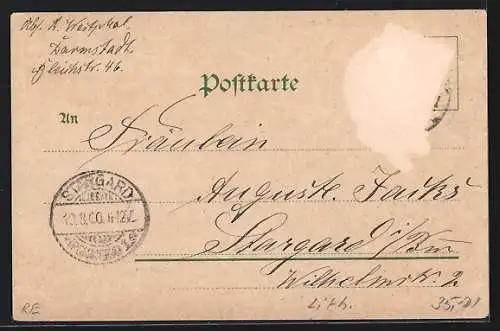 Abs. A. Westphal.
Darmstadt.
Bleichstr. 46.
Postkarte
An
Fräulein
Auguste
Stargard i/Pm
Wilhelmstr. 2
STARGARD
10.8.00. 6-12V.
Lith.
35,-
RE